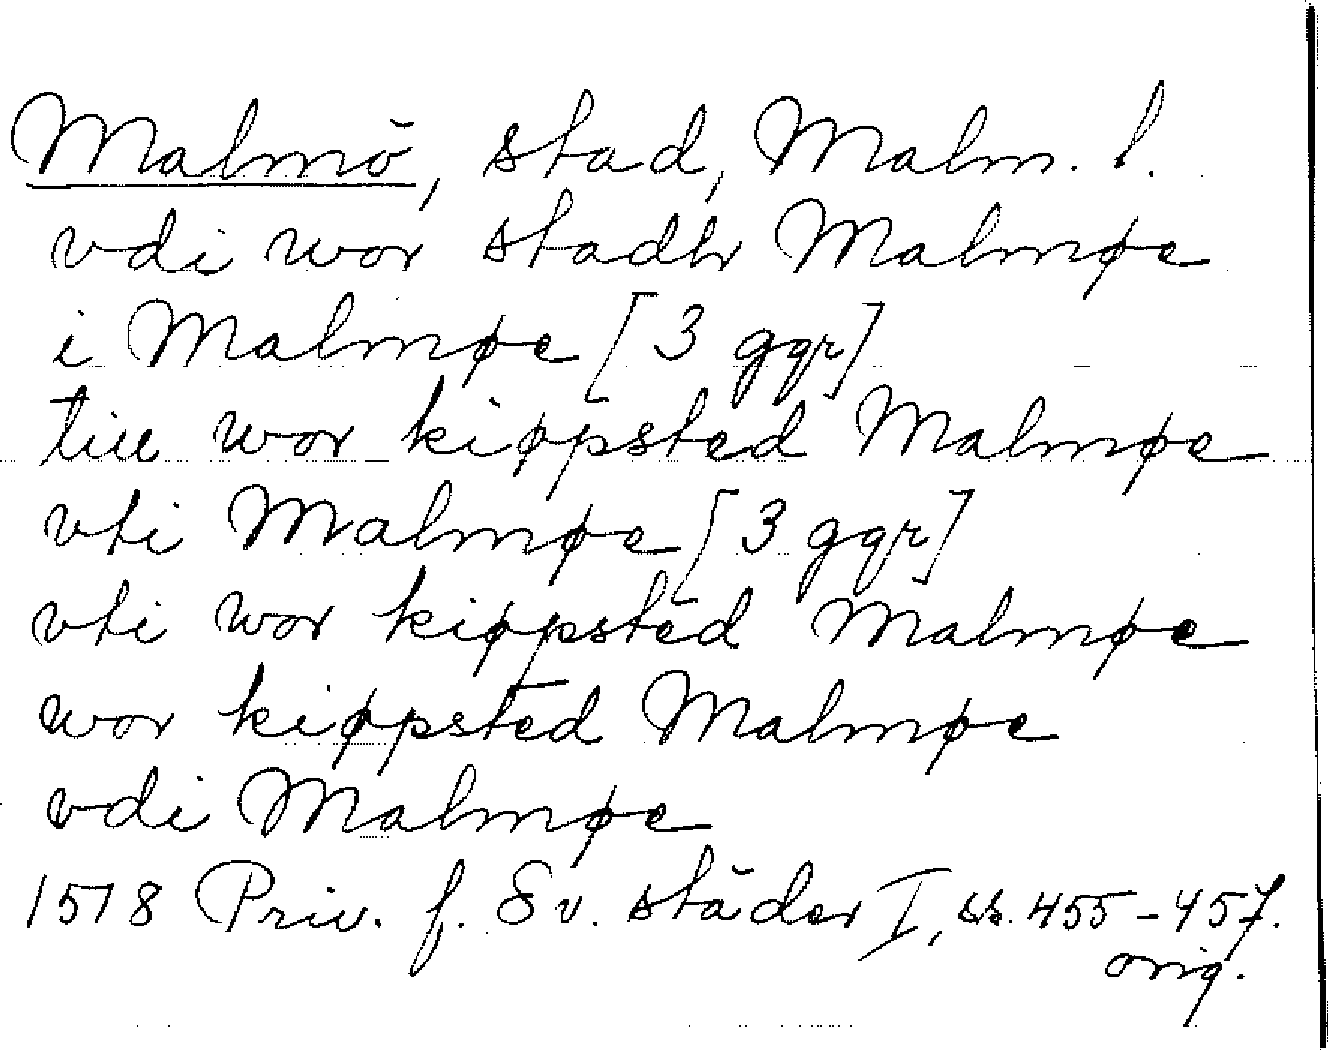 Malmö, stad, Malm. l.
vdi wor stadh Malmøe
i Malmøe [3 ggr]
till wor kiøpsted Malmøe
vti Malmøe [3 ggr]
vti wor kiøpsted Malmøe
wor kiøpsted Malmøe
vdi Malmøe
1518 Priv. f. Sv. städer I, ss. 455-457.
orig.